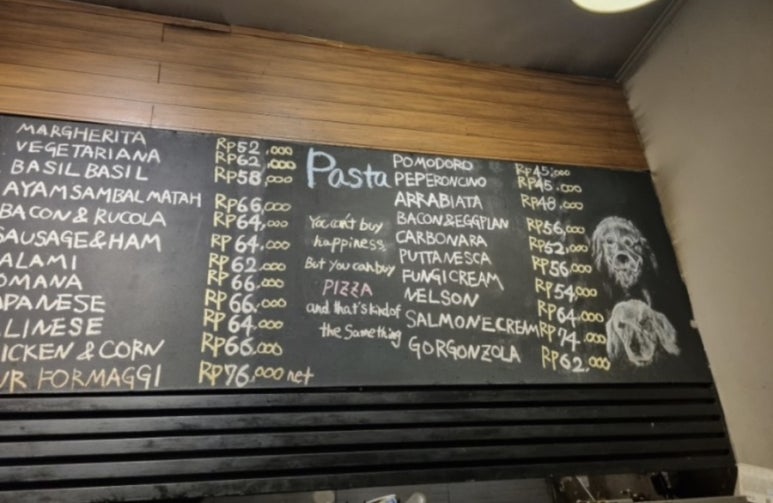 MARGHERITA Rp52.000
VEGETARIANA Rp62.000
BASIL BASIL Rp58.000
AYAM SAMBAL MATAH Rp66.000
BACON & RUCOLA Rp64.000
SAUSAGE & HAM Rp64.000
ALAMI Rp62.000
OMANA Rp66.000
PANESE Rp66.000
LINESE Rp64.000
ICKEN & CORN Rp66.000
UR FORMAGGI Rp76.000 net
You can't buy
happiness
But you can buy
PIZZA
and that's kind of
the same thing
Pasta
POMODORO Rp45.000
PEPERONCINO Rp45.000
ARRABIATA Rp48.000
BACON & EGGPLAN Rp56.000
CARBONARA Rp62.000
PUTTANESCA Rp56.000
FUNGI CREAM Rp54.000
NELSON Rp64.000
SALMONE CREAM Rp74.000
GORGONZOLA Rp62.000